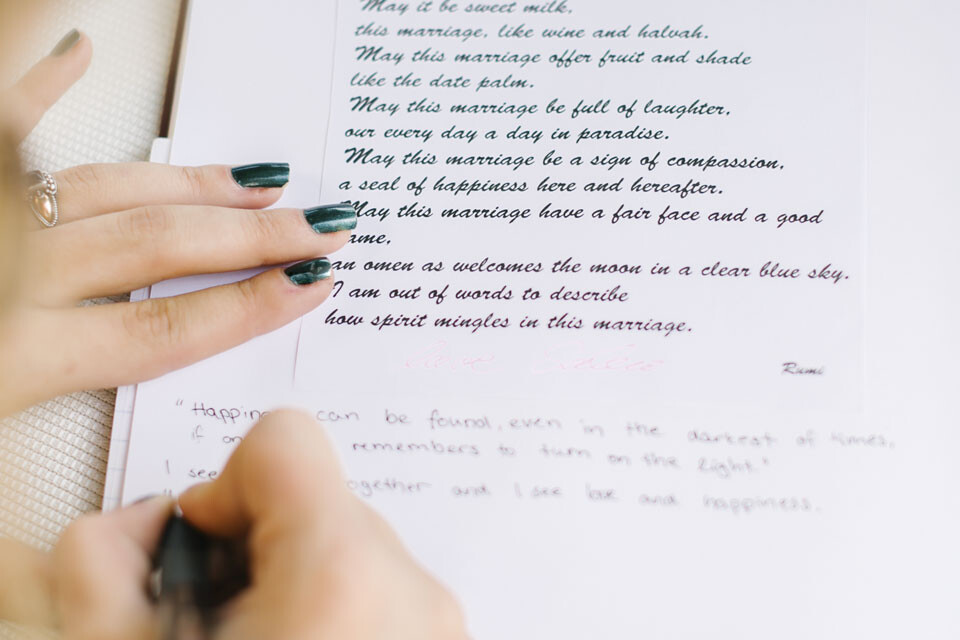 May it be sweet milk,
this marriage, like wine and halvah.
May this marriage offer fruit and shade
like the date palm.
May this marriage be full of laughter,
our every day a day in paradise.
May this marriage be a sign of compassion,
a seal of happiness here and hereafter.
May this marriage have a fair face and a good
ame,
an omen as welcomes the moon in a clear blue sky.
I am out of words to describe
how spirit mingles in this marriage.
Rumi
"Happin can be found, even in the darkest of times,
if on remembers to turn on the light."
I see ogether and I see love and happiness.